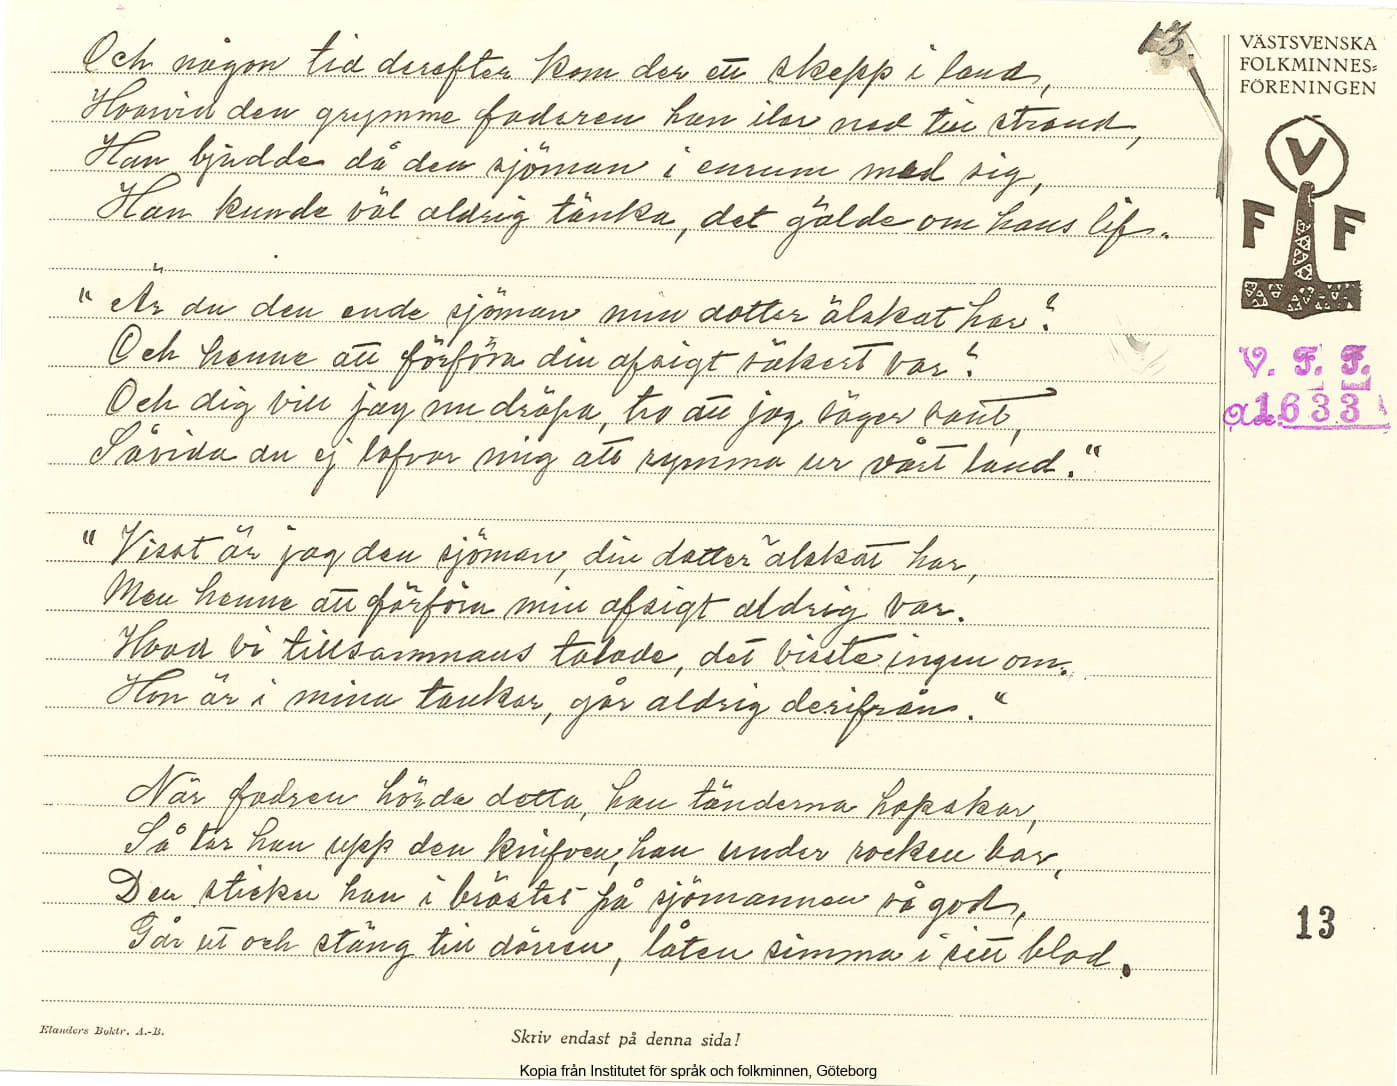 13.
Och någon tid derefter kom der ett skepp i land,
Hvarvid den grymme faderen han ilar ned till strand,
Han bjudde då den sjöman i enrum med sig,
Han kunde väl aldrig tänka, det gälde om hans lif.
"Är du den ende sjöman min dotter älskat har?
Och henne att förföra din afsigt säkert var?
Och dig vill jag nu dräpa, tro att jag säger sant,
Såvida du ej lofvar mig att rymma ur vårt land."
"Visst är jag den sjöman, din dotter älskat har,
Men henne att förföra min afsigt aldrig var.
Hvad vi tillsammans talade, det visste ingen om.
Hon är i mina tankar, går aldrig derifrån."
När fadren hörde detta, han tänderna hopskar,
Så tar han upp den knifven, han under rocken bar,
Den sticker han i bröstet på sjömannen så god,
Går ut och stäng till dörren, låten simma i sitt blod.
VÄSTSVENSKA
FOLKMINNES=
FÖRENINGEN
V
F F
V. F. F.
1633
13
Elanders Boktr. A.-B.
Skriv endast på denna sida!
Kopia från Institutet för språk och folkminnen, Göteborg